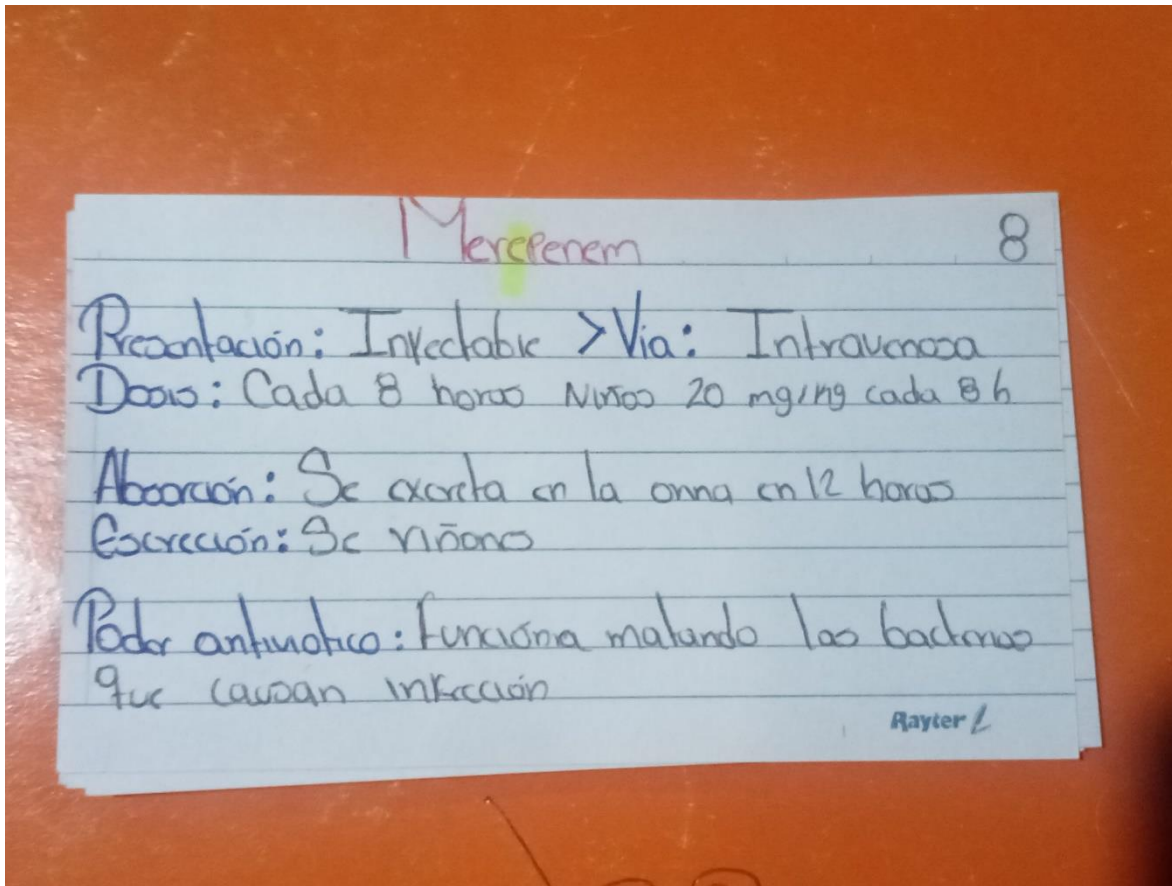 Merepenem 8
Presentación: Inyectable > Via: Intravenosa
Dosis: Cada 8 horas Niños 20 mg/mg cada 8 h
Absorción: Se excreta en la orina en 12 horas
Escreción: Se riñons
Poder antiviotico: Funciona matando las bacterias
que causan infección
Rayter